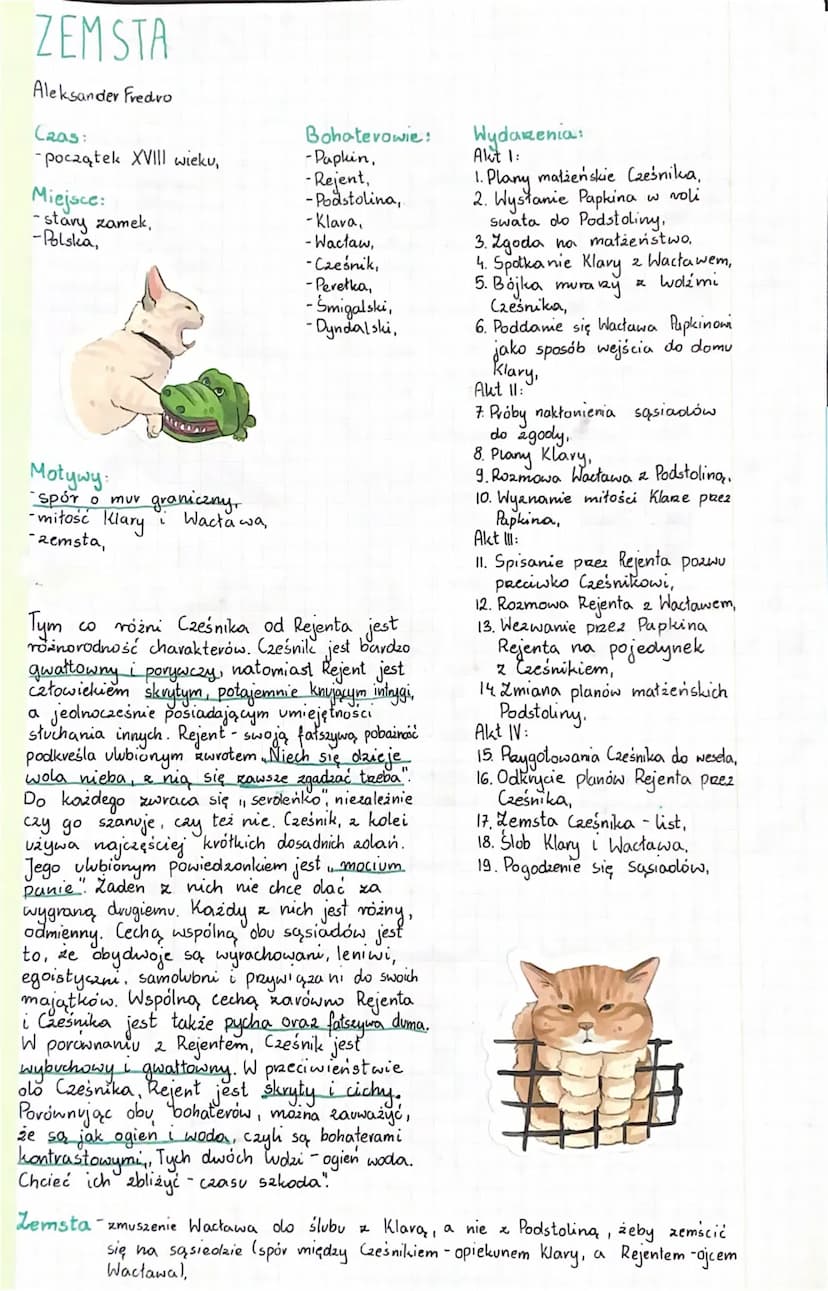 ZEMSTA
Aleksander Fredro
Czas:
- początek XVIII wieku,
Miejsce:
- stary zamek,
- Polska,
Motywy:
- spór o mur graniczny,
- miłość Klary i Wacława,
- zemsta,
Bohaterowie:
- Papkin,
- Rejent,
- Podstolina,
- Klara,
- Wacław,
- Cześnik,
- Perełka,
- Śmigalski,
- Dyndalski,
Wydarzenia:
Akt I:
1. Plany małżeńskie Cześnika,
2. Wysłanie Papkina w roli
swata do Podstoliny,
3. Zgoda na małżeństwo,
4. Spotkanie Klary z Wacławem,
5. Bójka murarzy z ludźmi
Cześnika,
6. Poddanie się Wacława Papkinowi
jako sposób wejścia do domu
Klary,
Akt II:
7. Próby nakłonienia sąsiadów
do zgody,
8. Plany Klary,
9. Rozmowa Wacława z Podstoliną,
10. Wyznanie miłości Klarze przez
Papkina,
Akt III:
11. Spisanie przez Rejenta pozwu
przeciwko Cześnikowi,
12. Rozmowa Rejenta z Wacławem,
13. Wezwanie przez Papkina
Rejenta na pojedynek
z Cześnikiem,
14. Zmiana planów małżeńskich
Podstoliny,
Akt IV:
15. Przygotowania Cześnika do wesela,
16. Odkrycie planów Rejenta przez
Cześnika,
17. Zemsta Cześnika - list,
18. Ślub Klary i Wacława,
19. Pogodzenie się sąsiadów,
Tym co różni Cześnika od Rejenta jest
różnorodność charakterów. Cześnik jest bardzo
gwałtowny i porywczy, natomiast Rejent jest
człowiekiem skrytym, potajemnie knującym intrygi,
a jednocześnie posiadającym umiejętności
słuchania innych. Rejent - swoją fałszywą pobożność
podkreśla ulubionym zwrotem „Niech się dzieje
wola nieba, z nią się zawsze zgadzać trzeba".
Do każdego zwraca się „serdeńko", niezależnie
czy go szanuje, czy też nie. Cześnik, z kolei
używa najczęściej krótkich dosadnich zdań.
Jego ulubionym powiedzonkiem jest „mocium
panie". Żaden z nich nie chce dać za
wygraną drugiemu. Każdy z nich jest różny,
odmienny. Cechą wspólną obu sąsiadów jest
to, że obydwoje są wyrachowani, leniwi,
egoistyczni, samolubni i przywiązani do swoich
majątków. Wspólną cechą zarówno Rejenta
i Cześnika jest także pycha oraz fałszywa duma.
W porównaniu z Rejentem, Cześnik jest
wybuchowy i gwałtowny. W przeciwieństwie
do Cześnika, Rejent jest skryty i cichy.
Porównując obu bohaterów, można zauważyć,
że są jak ogień i woda, czyli są bohaterami
kontrastowymi, „Tych dwóch ludzi - ogień woda.
Chcieć ich zbliżyć - czasu szkoda".
Zemsta - zmuszenie Wacława do ślubu z Klarą, a nie z Podstoliną, żeby zemścić
się na sąsiedzie (spór między Cześnikiem - opiekunem Klary, a Rejentem - ojcem
Wacława),